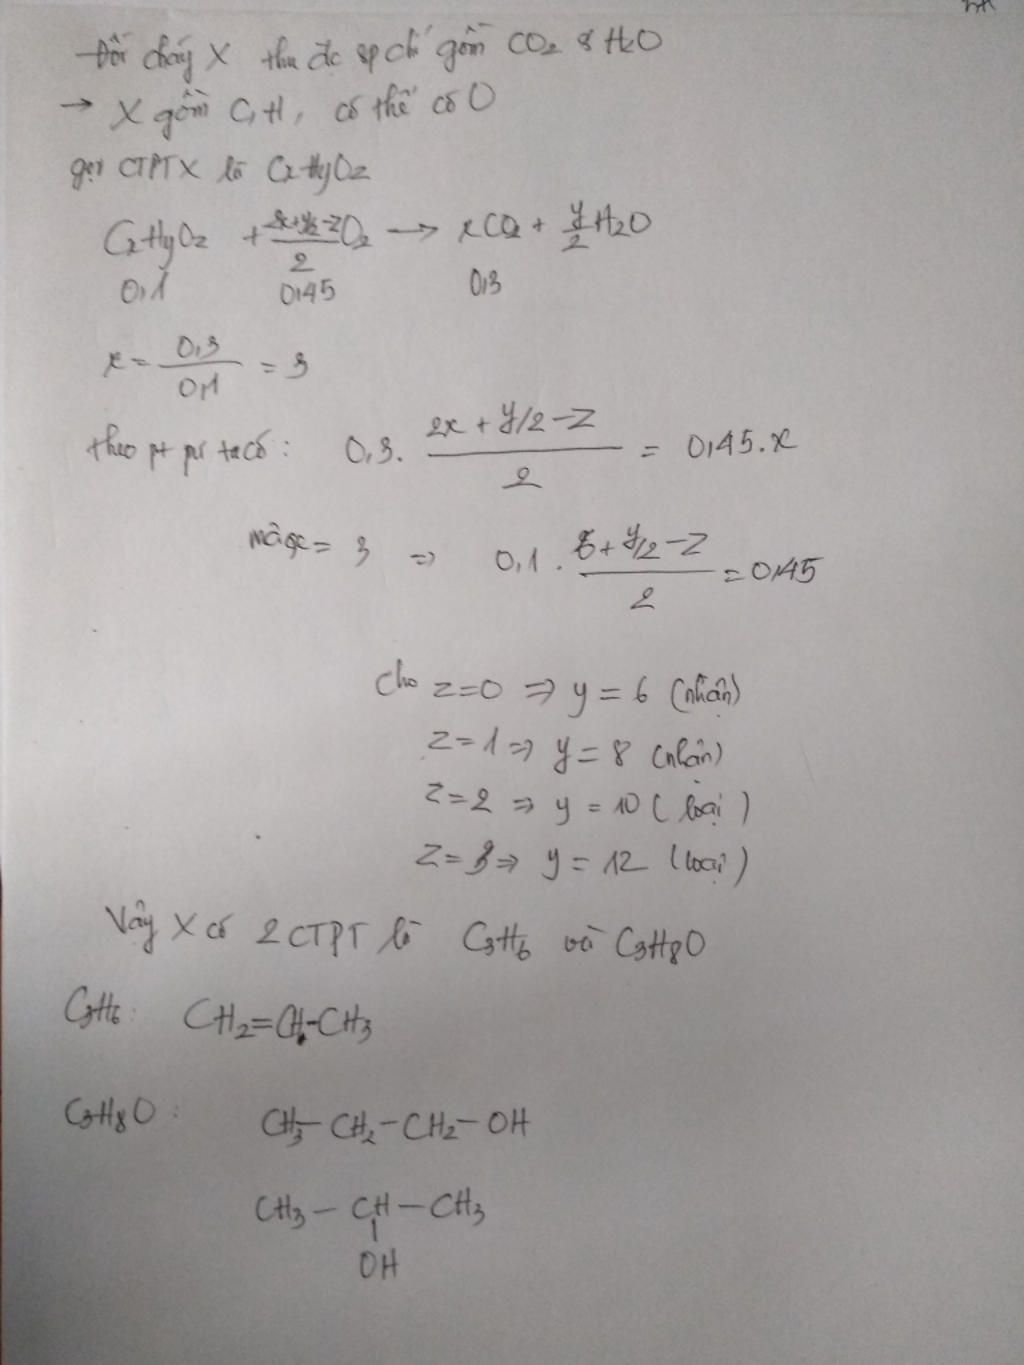 Đốt cháy X thu đc sp chỉ gồm CO2 & H2O
→ X gồm C, H, có thể có O
gọi CTPT X là CxHyOz
CxHyOz + (2x+y/2-z)/2 O2 → xCO2 + y/2 H2O
0,1 0,45 0,3
x = 0,3/0,1 = 3
theo pt pư ta có: 0,3 . (2x + y/2 - z)/2 = 0,45.x
mà x = 3 => 0,1 . (6 + y/2 - z)/2 = 0,45
Cho z=0 => y = 6 (nhận)
z=1 => y = 8 (nhận)
z=2 => y = 10 (loại)
z=3 => y = 12 (loại)
Vậy X có 2 CTPT là C3H6 và C3H8O
C3H6: CH2=CH-CH3
C3H8O: CH3-CH2-CH2-OH
CH3-CH-CH3
OH